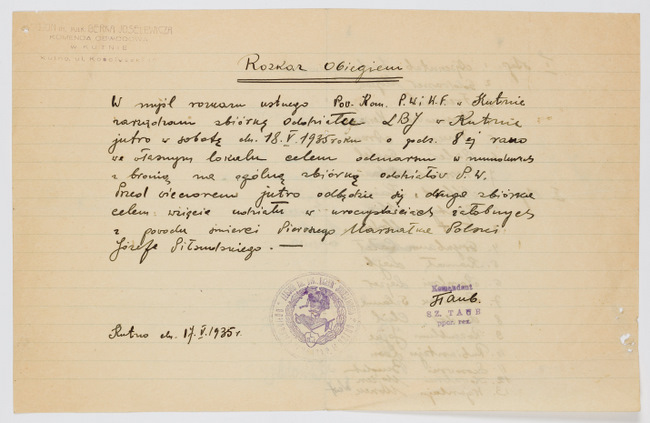 IM. KPT. BERKA JOSELEWICZA
KOMENDA OBWODOWA
W KUTNIE
Kutno, ul.
Rozkaz Obiegiem
W myśl rozkazu ustnego Pow. Kom. P.W. i W.F. w Kutnie
zarządzam zbiórkę Oddziałku ŻBJ w Kutnie
jutro w sobotę dn. 18.V.1935 roku o godz. 8ej rano
we własnym lokalu celem odmarszu w mundurach
z bronią na ogólną zbiórkę oddziałów P.W.
Przed wieczorem jutro odbędzie się druga zbiórka
celem wzięcia udziału w uroczystościach żałobnych
z powodu śmierci Pierwszego Marszałka Polski
Józefa Piłsudskiego. —
Komendant
Taub.
SZ. TAUB
ppor. rez.
Kutno dn. 17.V.1935r.